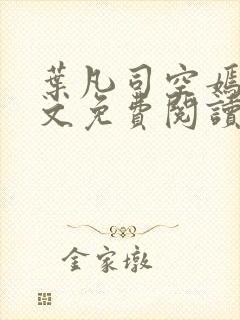 葉凡司空嫣
文免費閱讀
金家墩